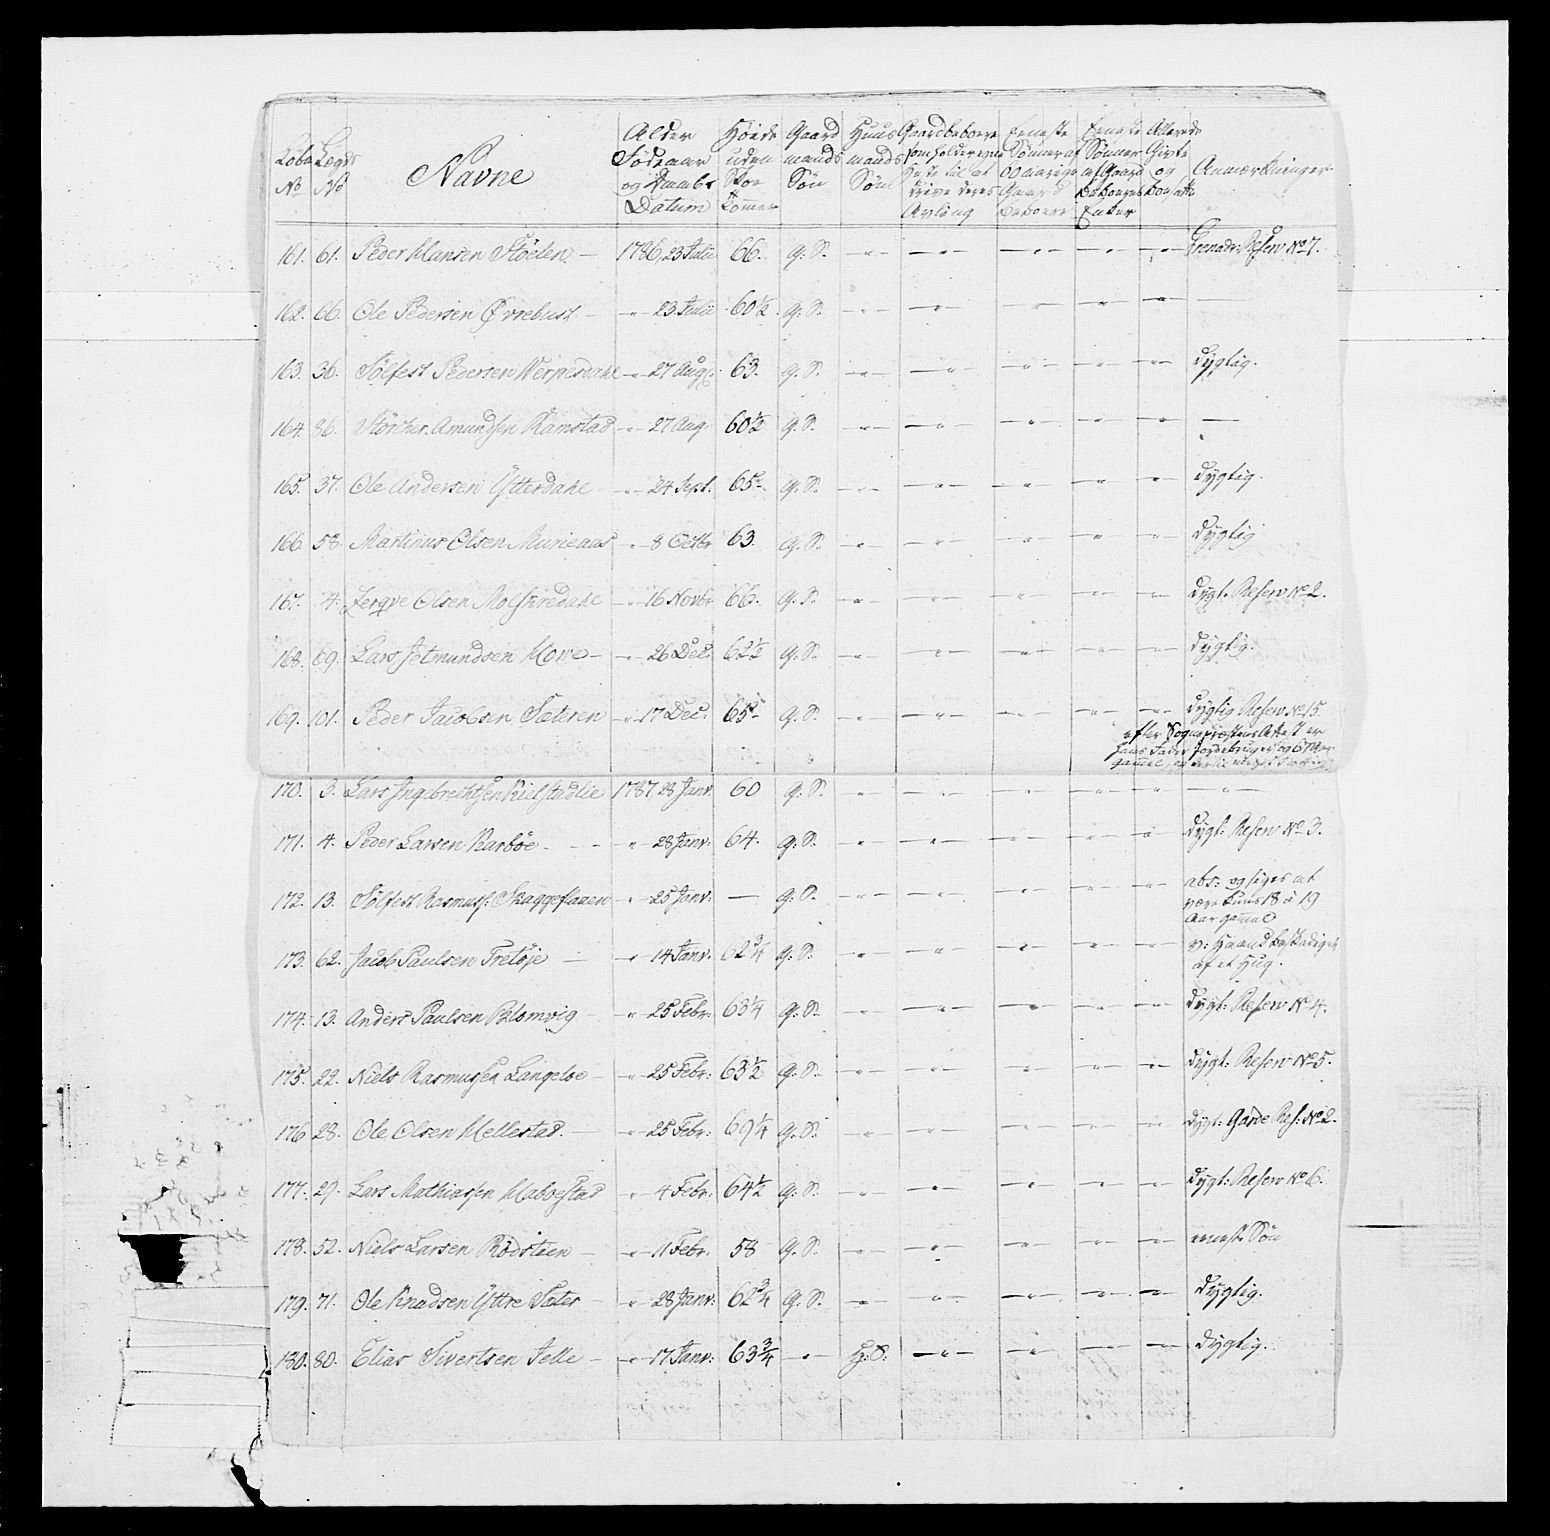 Løbe No Lægds No Navne Alder Fødeaar og Daabs Datum Høide uden Skoe Tommer Gaard mands Søn Huus mands Søn Gaardbeboere som holder een til at drive deres Avling Eeneste Sønner af 60 aarige Gaard beboere Eeneste Sønner af Gaard beboeres Enker Allerede Givte og bosatte Anmærkninger
161. 61. Peder Hansen Støelen — 1786, 23 Julii 66. G. S. Grenader: Reserv No 7.
162. 66. Ole Pedersen Øvrebust — 23 Julii 60 1/2 G. S.
163. 36. Sølfest Pedersen Werpesdahl 27 Aug: 63. G. S. dygtig.
164. 86. Størcher Amundsen Ramstad 27 Aug. 60 1/2 G. S. —
165. 37. Ole Andersen Ytterdahl 24 Sept. 65 G. S. dygtig.
166. 58. Martinus Olsen Murieaas 8 Octbr 63. G. S. dygtig
167. 4. Jergve Olsen Molskredahl 16 Novbr 66. G. S. dygt. Reserv No 2.
168. 69. Lars Jetmundsen Howe — 26 Dec. 62 1/2 G. S. dygtig.
169. 101. Peder Jacobsen Sæteren 17 Dec. 65 G. S. dygtig Reserv No 15.
efter Sognepræstens Attest er
hans Fader Jordebruger og
170. 3. Lars Ingebrechtsen Kielstadlie 1787, 28 Janr. 60 G. S.
171. 4. Peder Larsen Karbøe — 28 Janr: 64. G. S. dygt: Reserv No 3.
172. 13. Sølfest Rasmus: Skaggeflaaen 25 Janr: — G. S. abs: og siges at
være kuns 18 à 19
Aar gammel
173. 62. Jacob Paulsen Tretøje — 14 Janr: 62 3/4 G. S. v: Haand beskadiget
af et Hug.
174. 13. Anders Paulsen Blomvig 25 Febr: 63 1/4 G. S. dygt: Reserv No 4.
175. 22. Niels Rasmussen Langeloe — 25 Febr: 63 1/2 G. S. dygt: Reserv No 5.
176 28. Ole Olsen Hellestad. 25 Febr: 69 1/4 G. S. dygt: Garde Res: No 2.
177. 29. Lars Mathiassen Haboestad 4 Febr: 64 1/2 G. S. dygt: Reserv No 6.
178. 52. Niels Larsen Rødsteen — 11 Febr: 58 G. S. eeneste Søn
179. 71. Ole Knudsen Yttre Sæter 28 Janr: 62 3/4 G. S. dygtig.
180. 80. Elias Sivertsen Jelle — 17 Janr: 63 3/4 H: S: dygtig.